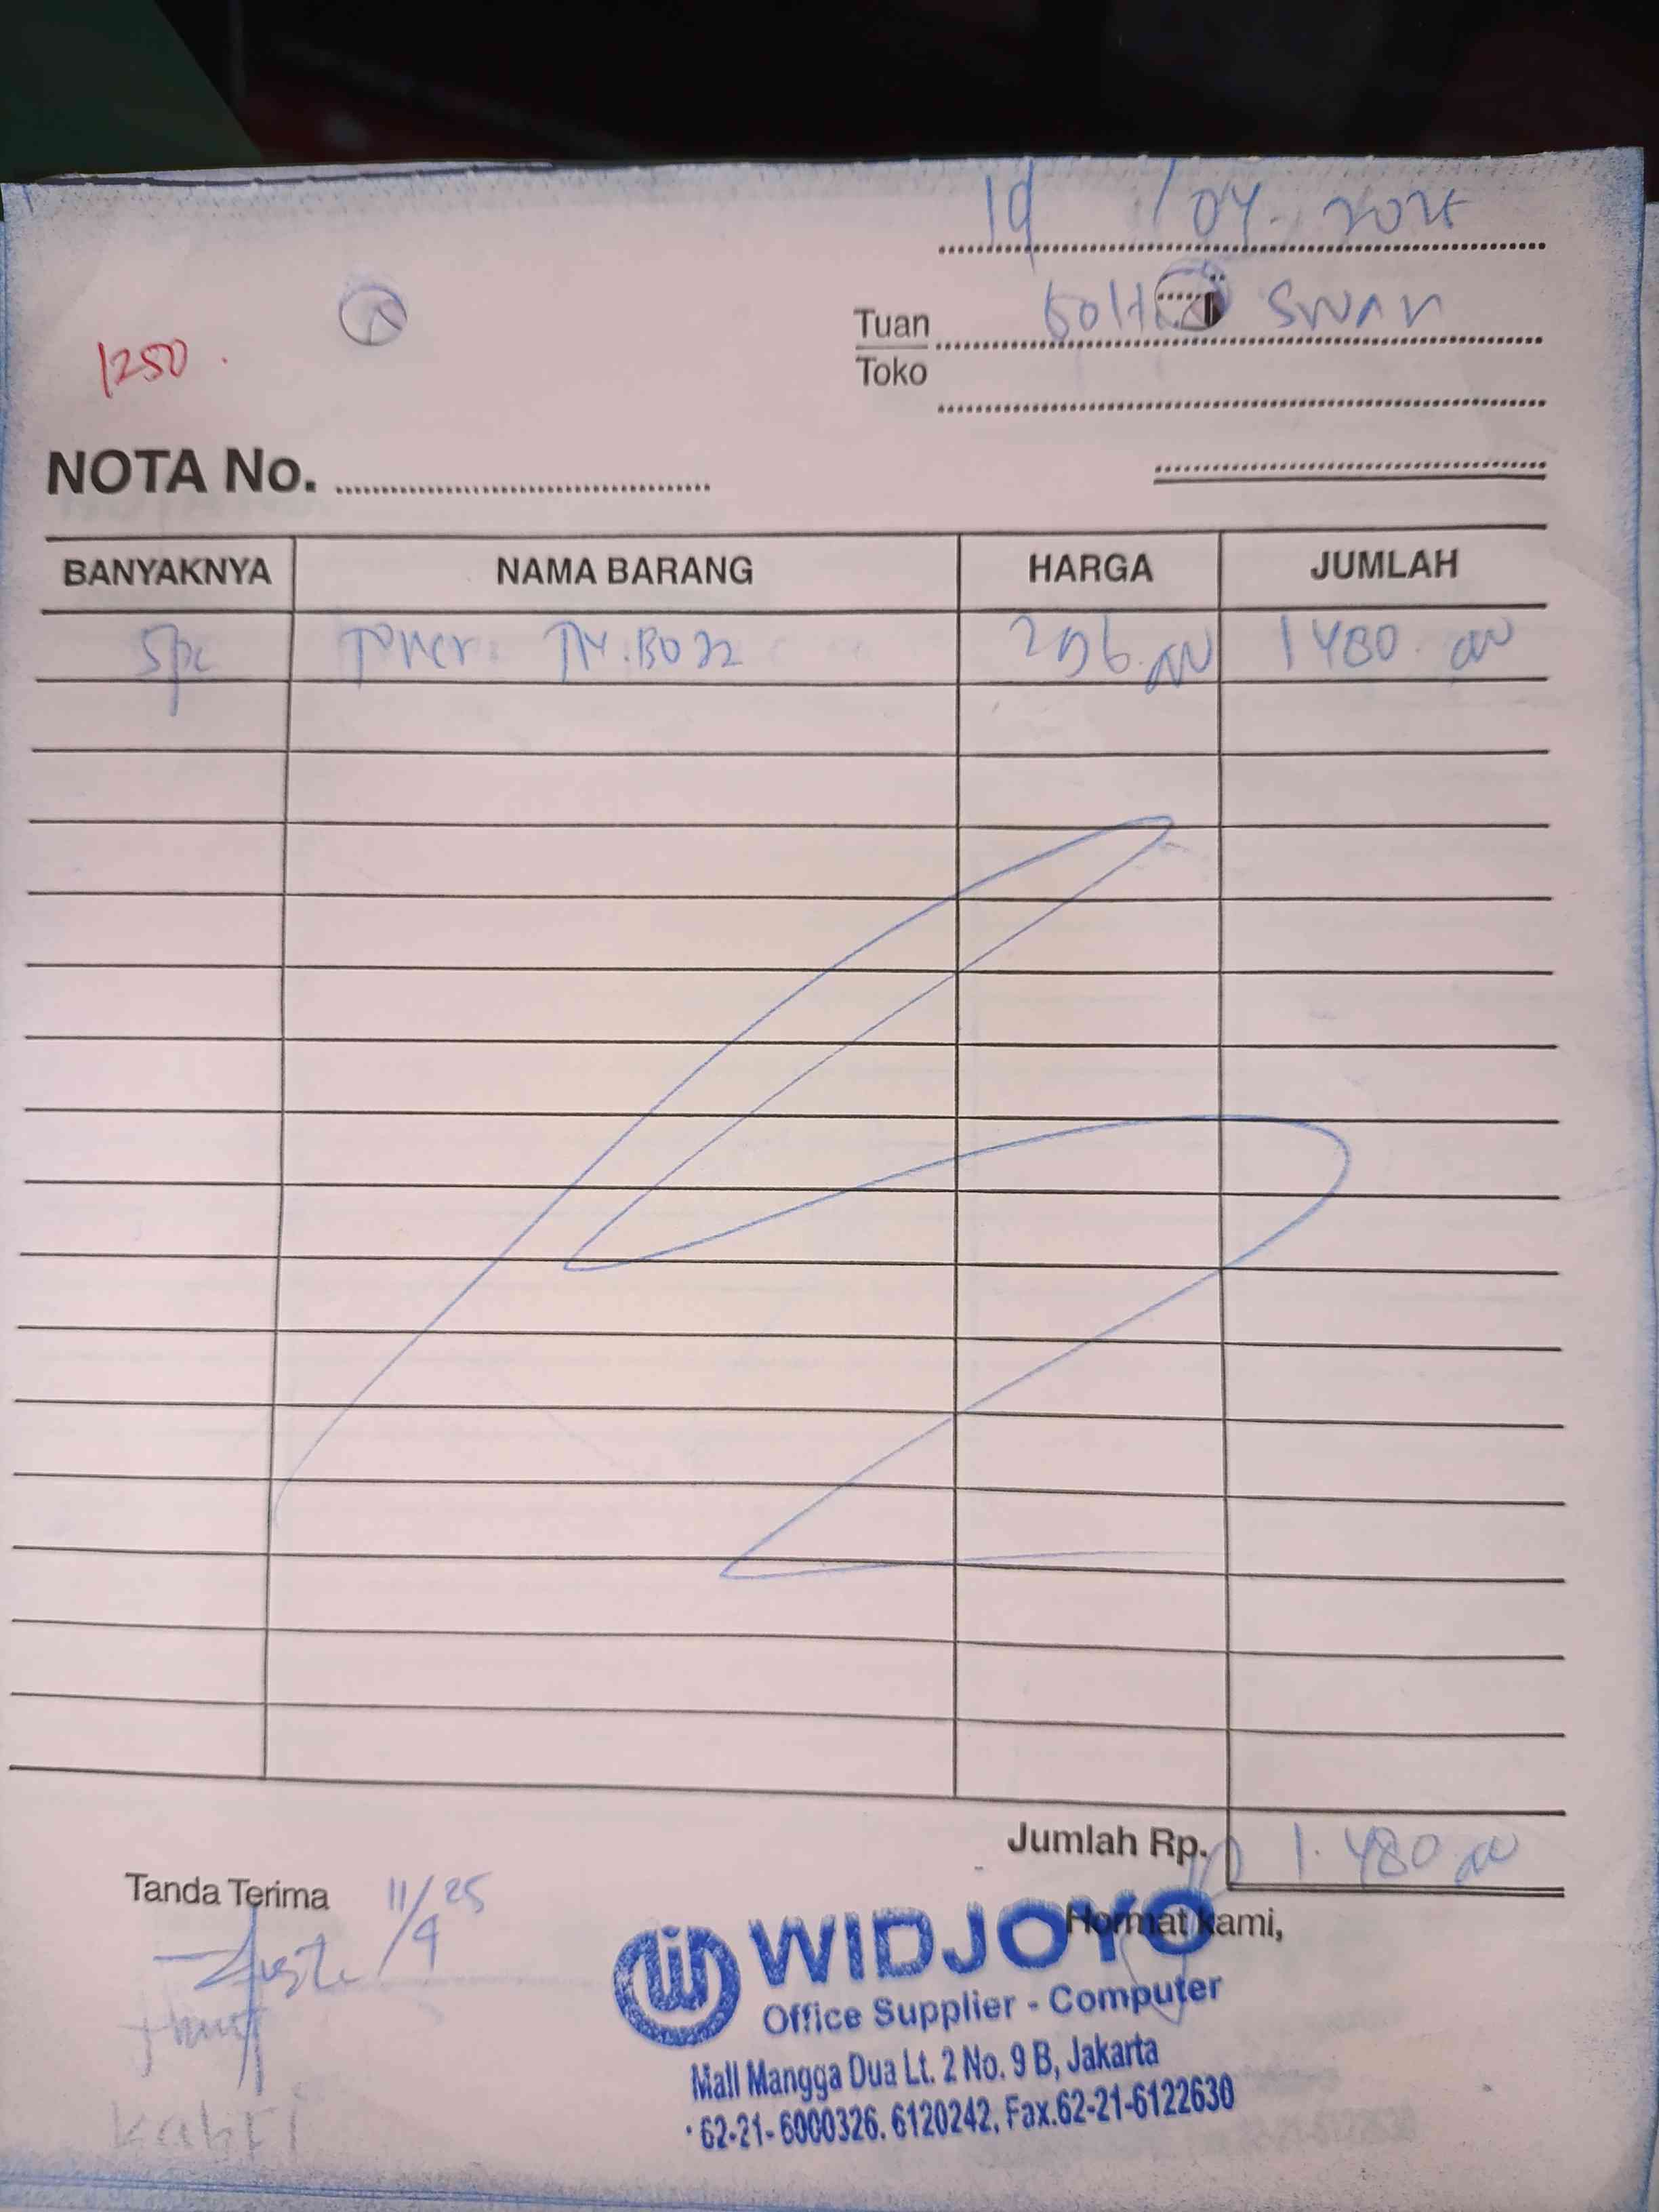 /04-2025
Tuan
Toko
SWAN
1250.
NOTA No.
BANYAKNYA NAMA BARANG HARGA JUMLAH
5pc Toner. 296.000 1480.000
Jumlah Rp. 1.480.000
Tanda Terima 11/4 25
Hormat kami,
WIDJOYO
Office Supplier - Computer
Mall Mangga Dua Lt. 2 No. 9 B, Jakarta
62-21-6000326. 6120242, Fax.62-21-6122630